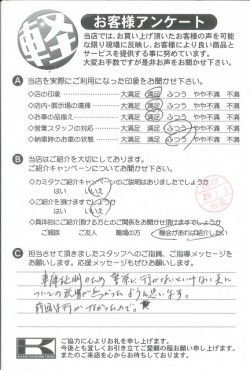 軽
お客様アンケート
当店では、お買い上げ頂いたお客様の声を可能
な限り現場に反映し、お客様により良い商品と
サービスを提供する事に努めています。
大変お手数ですが是非お声をお聞かせ下さい。
A 当店を実際にご利用になった印象をお聞かせ下さい。
◇店の印象 ・・・ 大満足 満足 ふつう やや不満 不満
◇店内・展示場の清掃 ・・・ 大満足 満足 ふつう やや不満 不満
◇お車の品揃え ・・・ 大満足 満足 ふつう やや不満 不満
◇営業スタッフの対応 ・・・ 大満足 満足 ふつう やや不満 不満
◇納車時のお車の状態 ・・・ 大満足 満足 ふつう やや不満 不満
B 当店はご紹介を大切にしております。
ご紹介キャンペーンについてお聞かせ下さい。
◇カミタケご紹介キャンペーンのご説明はありましたでしょうか
はい いいえ
◇ご紹介を頂けますでしょうか
はい いいえ
◇具体的にご紹介頂ける方との関係をお聞かせ頂けますでしょうか
ご親族 ご友人 職場の方 機会があれば紹介したい
C 担当させて頂きましたスタッフへのご指摘、ご指導メッセージを
お願いします。応援メッセージもぜひお願いします。
車庫証明のため警察に行かないといけない
ついての説明が
前回は行かなかったので。
K
ご協力に心よりお礼を申し上げます。
今後とも宜しくお引き立てご愛顧の程お願い申し上げます。
またのご来店を心からお待ちしております。